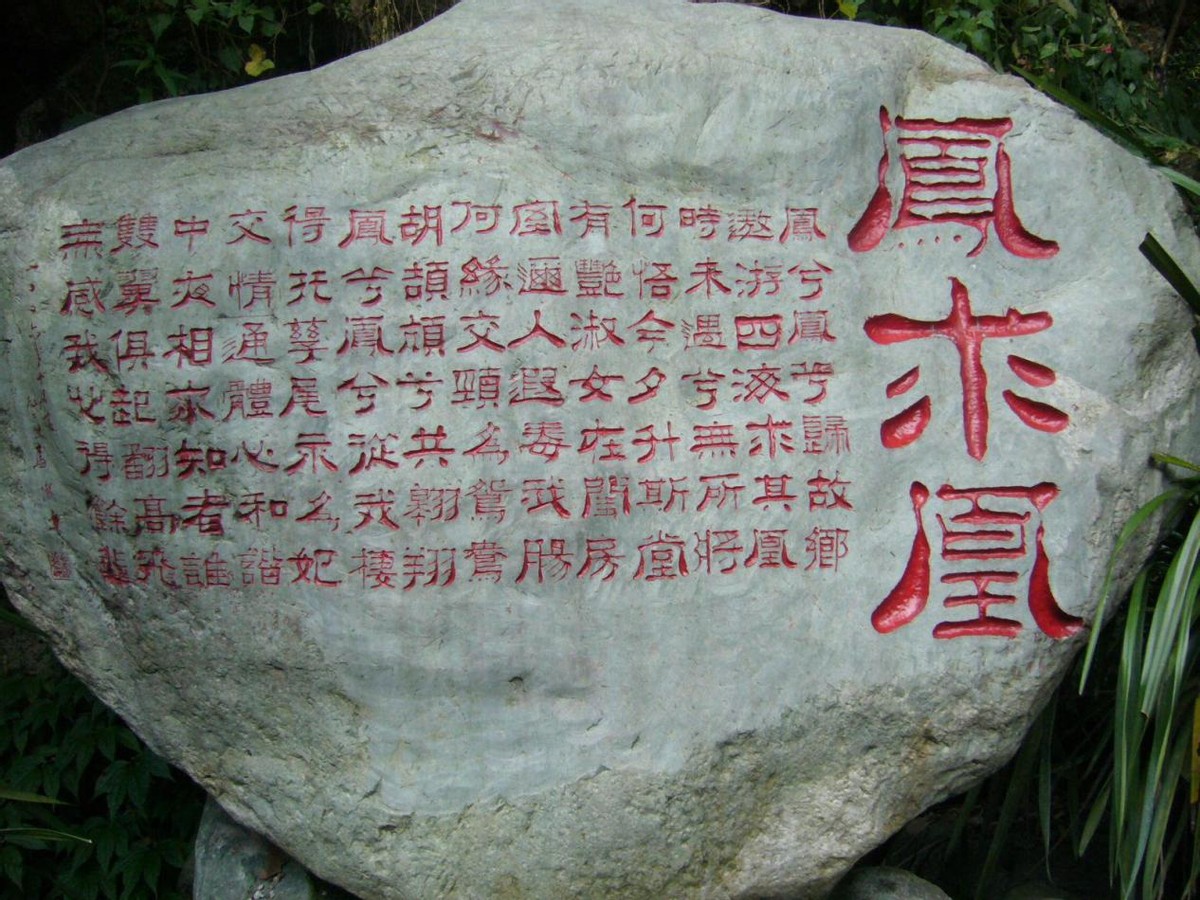 鳳求凰
鳳兮鳳兮歸故鄉
遨游四海求其凰
時未遇兮無所將
何悟今夕升斯堂
有豔淑女在閨房
室邇人遐毒我腸
何緣交頸為鴛鴦
胡頡頏兮共翱翔
鳳兮鳳兮從我棲
得托孳尾永為妃
交情通體心和諧
中夜相從知者誰
雙翼俱起翻高飛
無感我心得餘悲